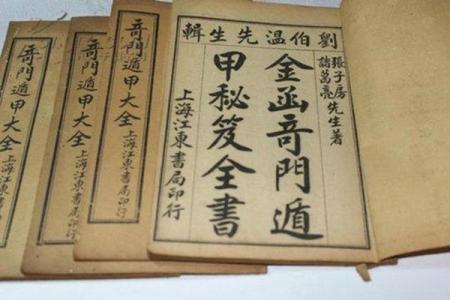 奇門遁甲大全
上海江東書局印行
奇門遁甲大全
上海江東書局印行
奇門遁甲大全
上海江東書局印行
劉伯温先生輯
張子房
諸葛亮
先生著
金函奇門遁
甲秘笈全書
上海江東書局印行